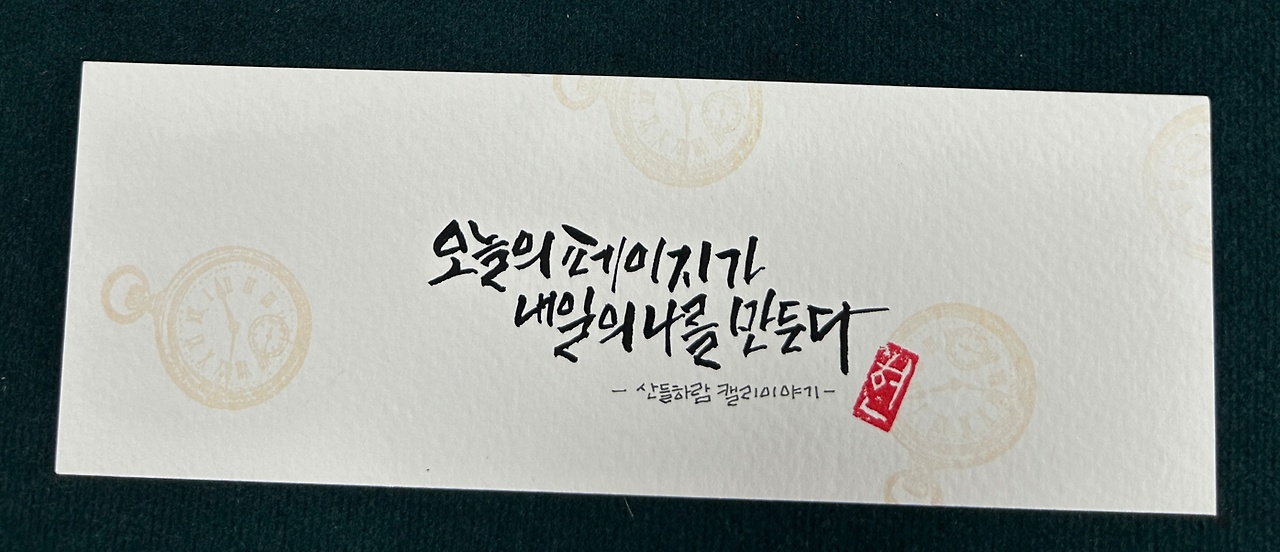 오늘의 페이지가
내일의 나를 만든다
- 산들하람 캘리이야기 -